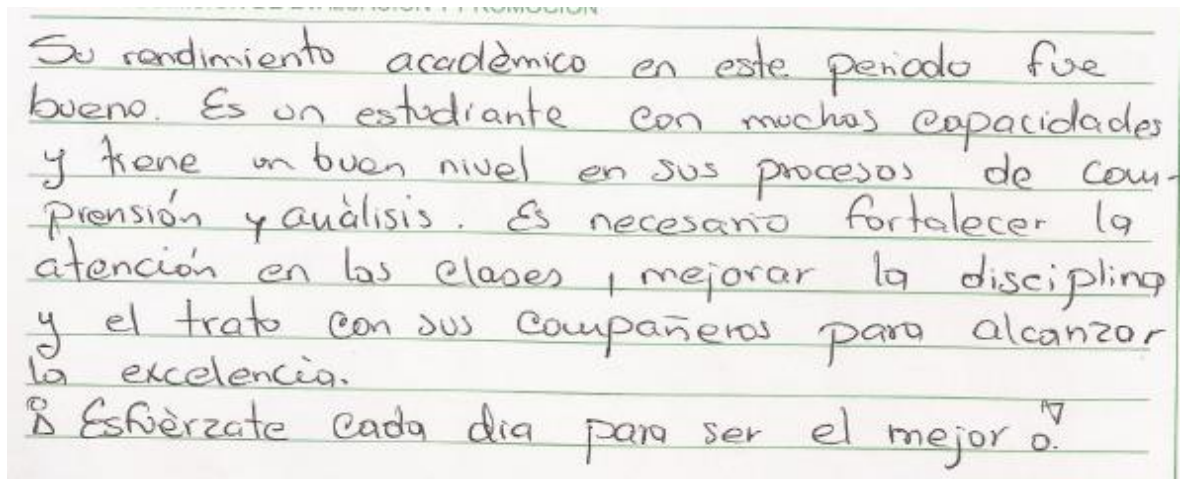 Su rendimiento académico en este periodo fue
bueno. Es un estudiante con muchas capacidades
y tiene un buen nivel en sus procesos de com-
prensión y análisis. Es necesario fortalecer la
atención en las clases, mejorar la disciplina
y el trato con sus compañeros para alcanzar
la excelencia.
¡ Esfuèrzate cada dia para ser el mejor !